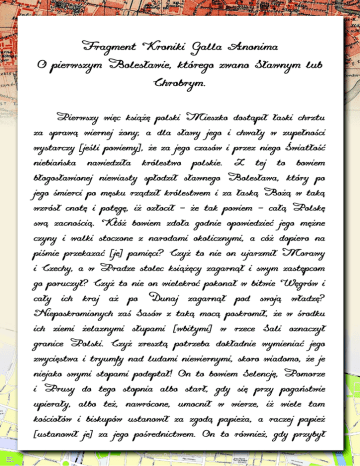 Fragment Kroniki Galla Anonima
O pierwszym Bolesławie, którego zwano Sławnym lub
Chrobrym.
Pierwszy więc książę polski Mieszko dostąpił łaski chrztu
za sprawą wiernej żony; a dla sławy jego i chwały w zupełności
wystarczy [jeśli powiemy], że za jego czasów i przez niego Światłość
niebiańska nawiedziła królestwo polskie. Z tej to bowiem
błogosławionej niewiasty spłodził sławnego Bolesława, który po
jego śmierci po męsku rządził królestwem i za łaską Bożą w taką
wzrósł cnotę i potęgę, iż ozłocił – że tak powiem – całą Polskę
swą zacnością. Któż bowiem zdoła godnie opowiedzieć jego mężne
czyny i walki stoczone z narodami okolicznymi, a cóż dopiero na
piśmie przekazać [je] pamięci? Czyż to nie on ujarzmił Morawy
i Czechy, a w Pradze stolec książęcy zagarnął i swym zastępcom
go poruczył? Czyż to nie on wielekroć pokonał w bitwie Węgrów i
cały ich kraj aż po Dunaj zagarnął pod swoją władzę?
Nieposkromionych zaś Sasów z taką mocą poskromił, że w środku
ich ziemi żelaznymi słupami [wbitymi] w rzece Sali oznaczył
granice Polski. Czyż zresztą potrzeba dokładnie wymieniać jego
zwycięstwa i tryumfy nad ludami niewiernymi, skoro wiadomo, że je
niejako swymi stopami podeptał! On to bowiem Selencję, Pomorze
i Prusy do tego stopnia albo starł, gdy się przy pogaństwie
upierały, albo też, nawrócone, umocnił w wierze, iż wiele tam
kościołów i biskupów ustanowił za zgodą papieża, a raczej papież
[ustanowił je] za jego pośrednictwem. On to również, gdy przybył